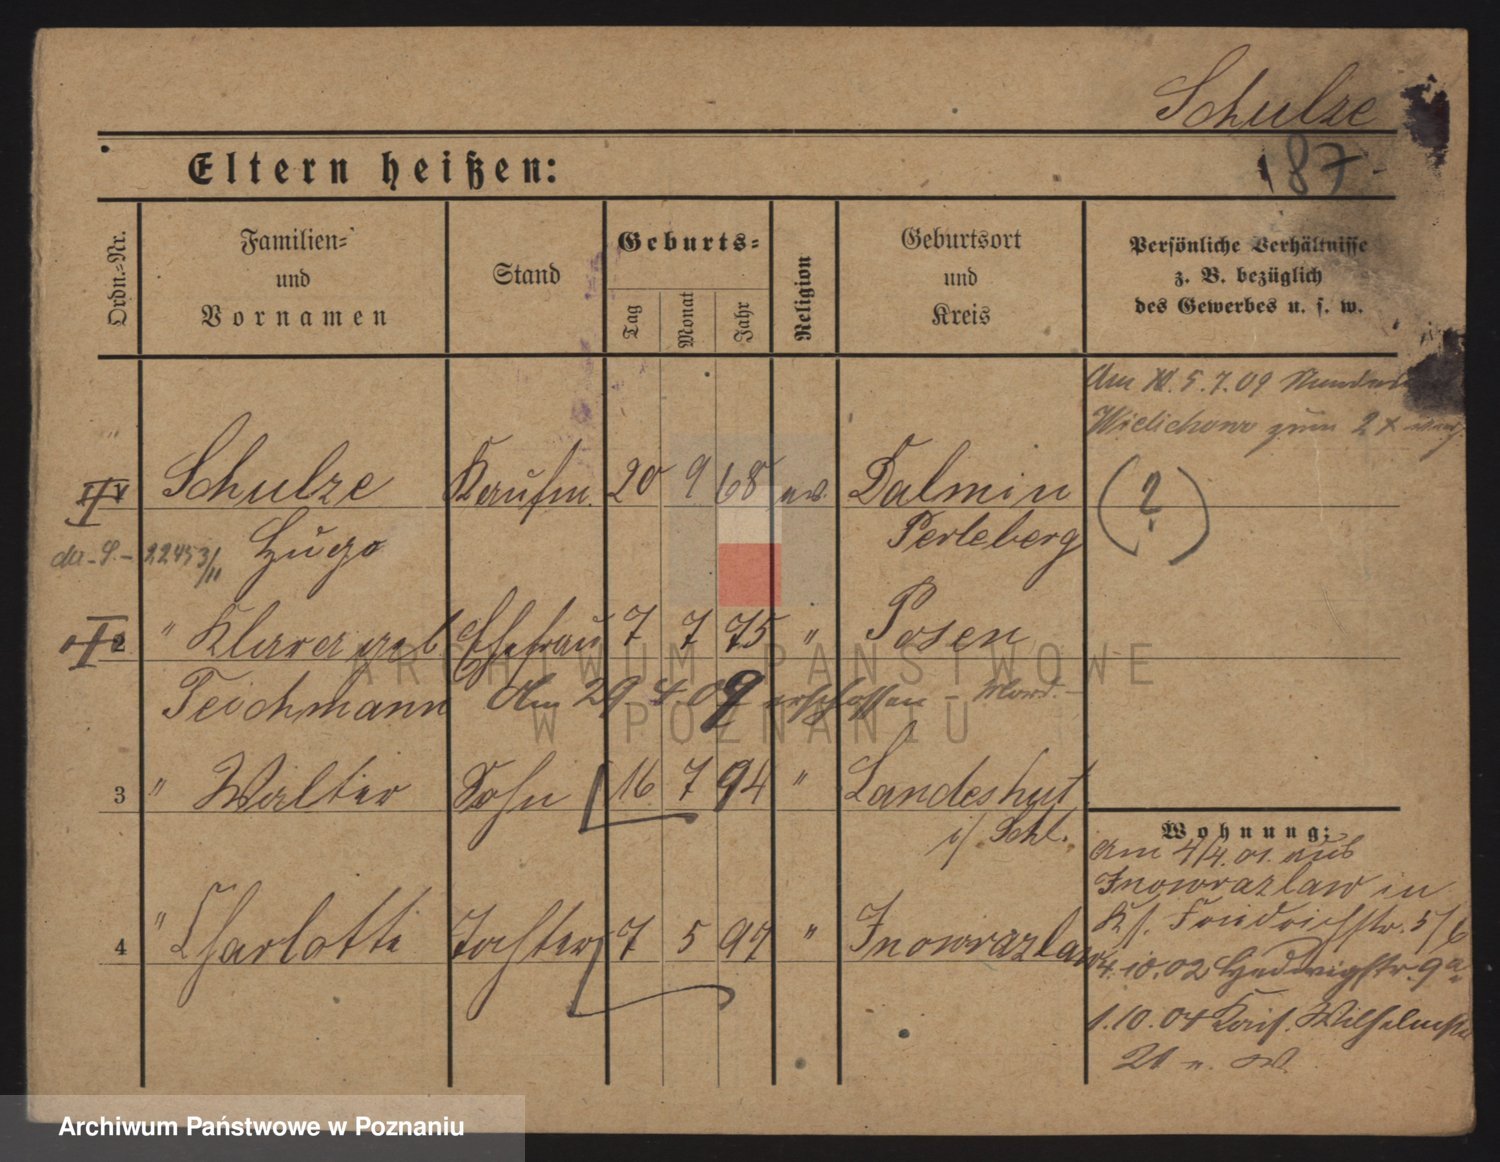 Schulze
87
Eltern heißen:
Ordn.=Nr.
Familien=
und
Vornamen
Stand
Geburts=
Tag
Monat
Jahr
Religion
Geburtsort
und
Kreis
Persönliche Verhältnisse
z. B. bezüglich
des Gewerbes u. s. w.
Am 5.7.09
Wielichowo zum 2 x
Schulze Kaufm. 20 9 68 ev. Dalmin
22453/11 Hugo Perleberg
(?)
2 " Klara geb Ehefrau 7 7 75 " Posen
Teichmann Am 29.4.09 erschossen - Mord. -
3 " Walter Sohn 16 7 94 " Landeshut
i/ Schl.
4 " Charlotte Tochter 7 5 97 " Inowrazlaw
Wohnung:
Am 4/4.01. aus
Inowrazlaw in
Friedrichstr. 5/6
4.10.02 Hedwigstr. 9a
1.10.04 Kais. Wilhelmstr
21
ARCHIWUM PAŃSTWOWE
W POZNANIU
Archiwum Państwowe w Poznaniu